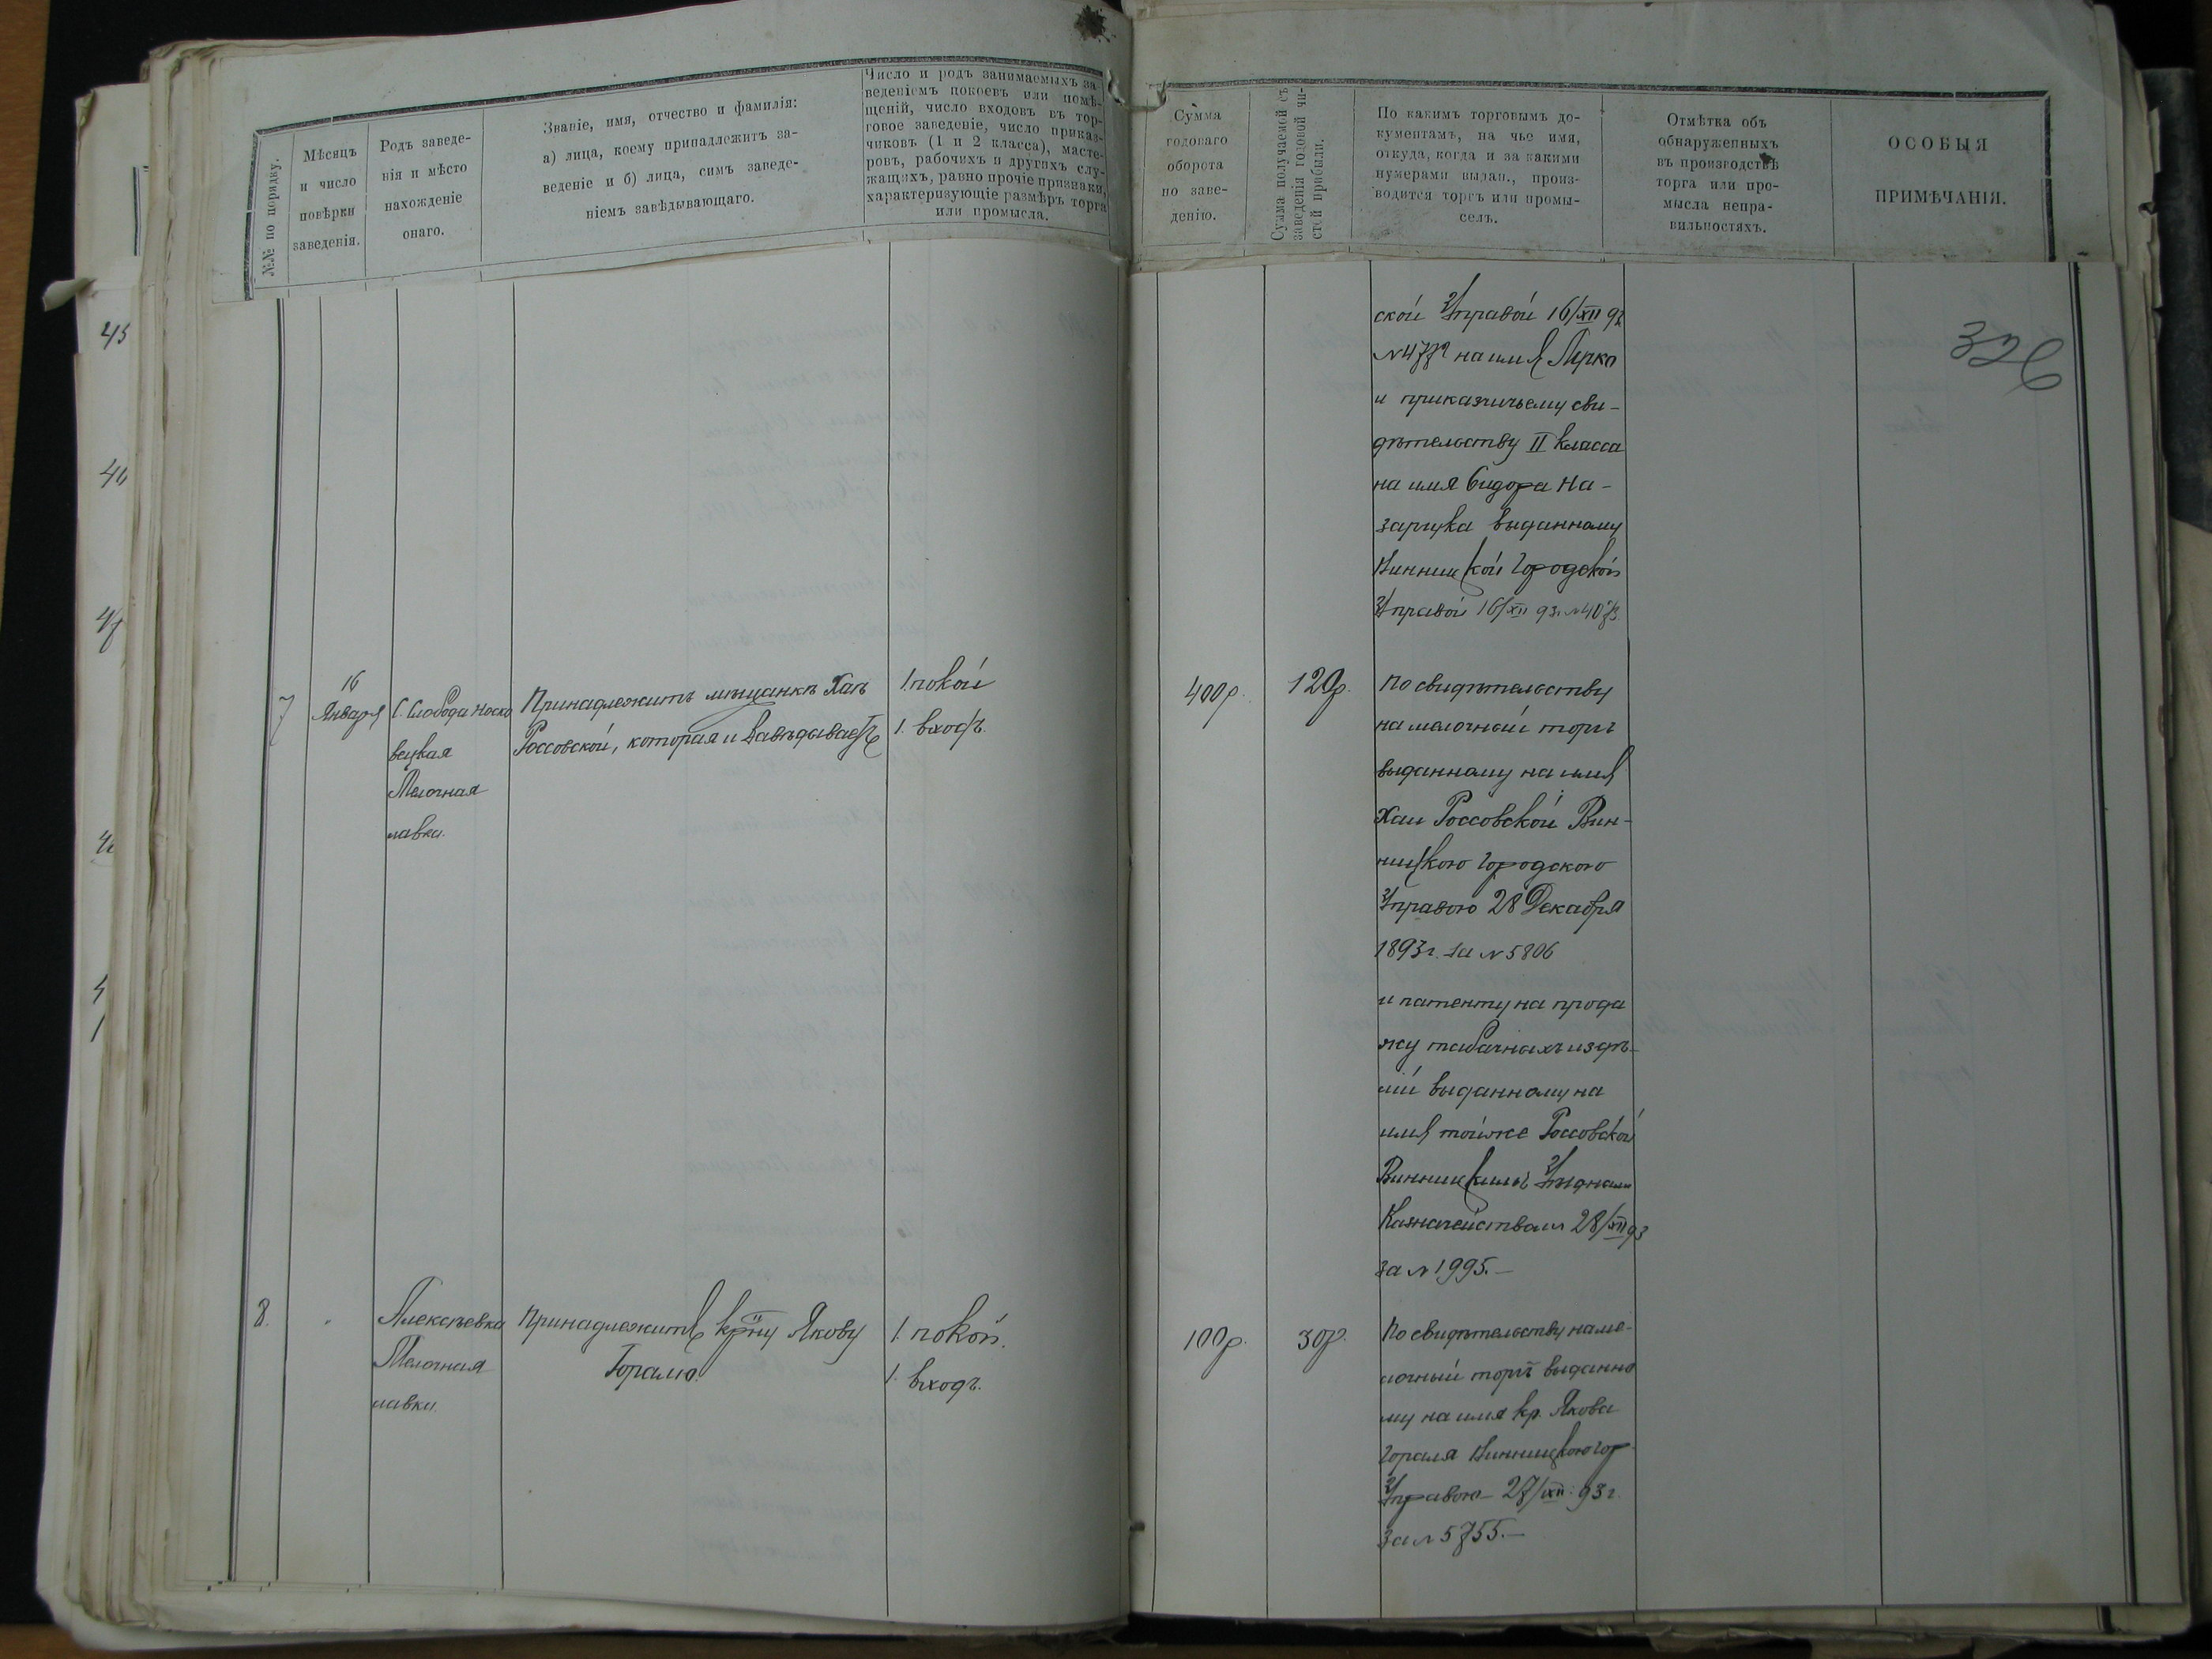 №№ по порядку.
Мѣсяцъ
и число
повѣрки
заведенія.
Родъ заведе-
нія и мѣсто
нахожденіе
онаго.
Званіе, имя, отчество и фамилія:
а) лица, коему принадлежитъ за-
веденіе и б) лица, симъ заведе-
ніемъ завѣдывающаго.
Число и родъ занимаемыхъ за-
веденіемъ покоевъ или помѣ-
щеній, число входовъ въ тор-
говое заведеніе, число приказ-
чиковъ (1 и 2 класса), масте-
ровъ, рабочихъ и другихъ слу-
жащихъ, равно прочіе признаки,
характеризующіе размѣръ торга
или промысла.
Сумма
годоваго
оборота
по заве-
денію.
Сумма получаемой съ
заведенія годовой чи-
стой прибыли.
По какимъ торговымъ до-
кументамъ, на чье имя,
откуда, когда и за какими
нумерами выдан., произ-
водится торгъ или промы-
селъ.
Отмѣтка объ
обнаруженныхъ
въ производствѣ
торга или про-
мысла непра-
вильностяхъ.
ОСОБЫЯ
ПРИМѢЧАНІЯ.
326
ской Управой 16/XII 93
на имя
и приказчичьему сви-
дѣтельству II класса
на имя Сидора На-
зарука выданному
Винницкой Городской
Управой 16/XII 93г. №4073.
7
16
Января
С. Слобода Носко
вецкая
Мелочная
лавка.
Принадлежитъ мѣщанкѣ Хаѣ
Россовской, которая и завѣдываетъ
1. покой
1. входъ.
400р.
120р.
По свидѣтельству
на мелочный торгъ
выданному на имя
Хаи Россовской Вин-
ницкою Городскою
Управою 28 Декабря
1893г. за №5806
и патенту на прода
жу табачныхъ издѣ-
лій выданному на
имя тойже Россовской
Винницкимъ Уѣзднымъ
Казначействомъ 28/XII 93
за №1995.—
8.
"
Алексѣевка
Мелочная
лавка.
Принадлежитъ кр-ну Якову
Горалю.
1. покой.
1. входъ.
100р.
30р.
По свидѣтельству на ме-
лочный торгъ выданно
му на имя кр. Якова
Гораля Винницкою гор
Управою 27/XII 93г.
За №5755.—
45